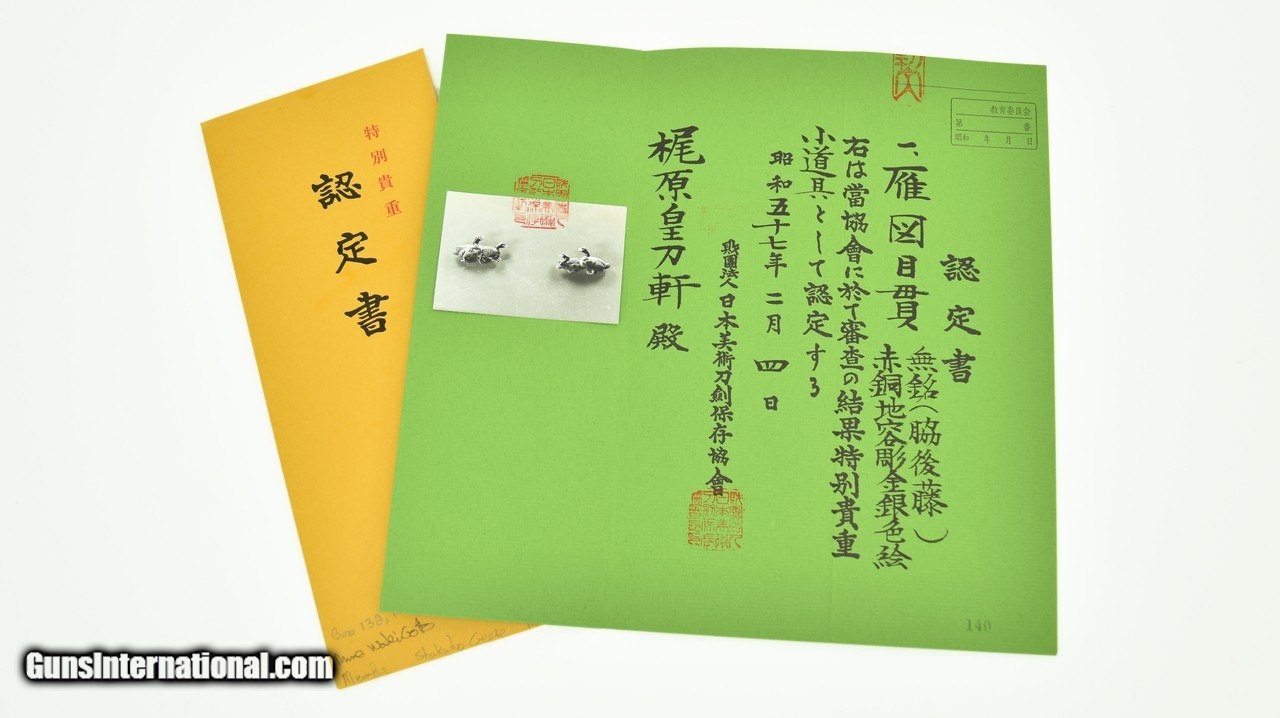 特別貴重
認定書
Box 133,
Waki Goto
Shakudo
教育委員会
第 番
昭和 年 月 日
認定書
一、雁図目貫
無銘(脇後藤)
赤銅地容彫金銀色絵
右は當協會に於て審査の結果特別貴重
小道具として認定する
昭和五十七年二月四日
財團法人日本美術刀劍保存協會
梶原皇刀軒殿
140
GunsInternational.com